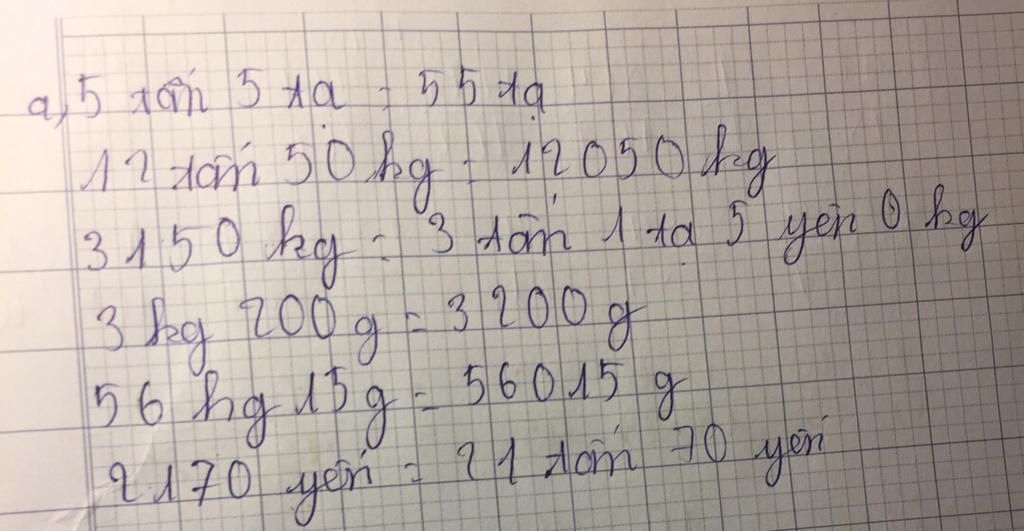 a, 5 tấn 5 tạ = 55 tạ
12 tấn 50 kg = 12050 kg
3150 kg = 3 tấn 1 tạ 5 yến 0 kg
3 kg 200 g = 3200 g
56 kg 15 g = 56015 g
2170 yến = 21 tấn 70 yến